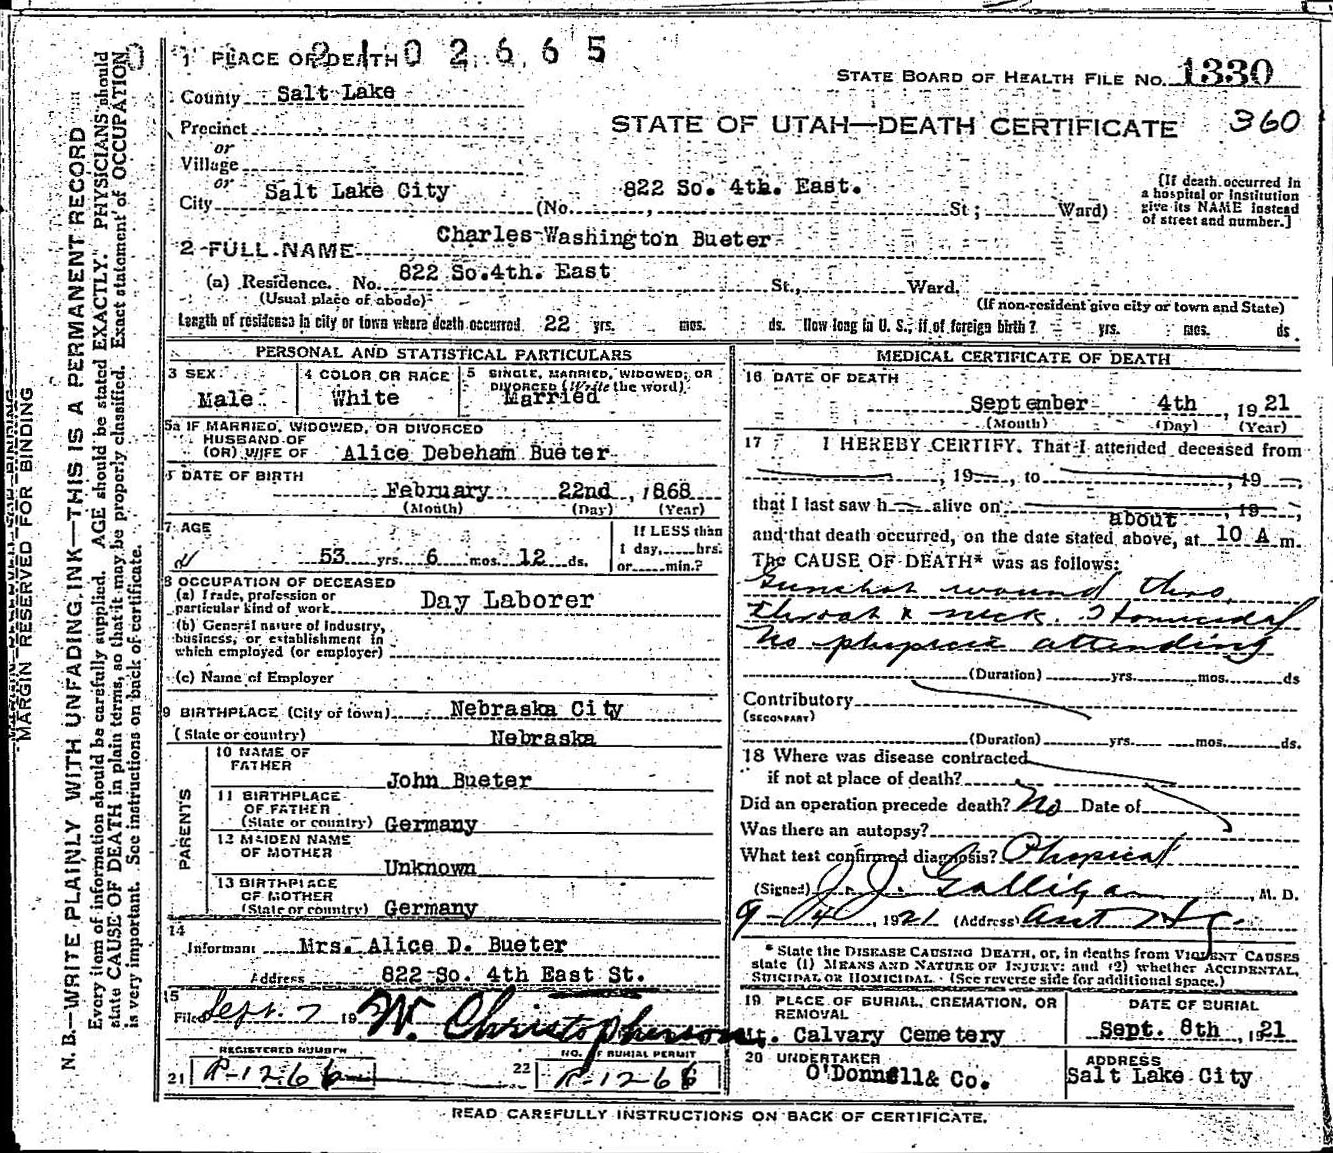 2102665
1 PLACE OF DEATH
STATE BOARD OF HEALTH FILE NO. 1330
County Salt Lake
STATE OF UTAH—DEATH CERTIFICATE 360
Precinct
or
Village
or
City Salt Lake City (No. 822 So. 4th. East. St.; Ward)
[If death occurred in a hospital or institution give its NAME instead of street and number.]
2 FULL NAME Charles Washington Bueter
(a) Residence. No. 822 So.4th. East St., Ward.
(Usual place of abode) (If non-resident give city or town and State)
Length of residence in city or town where death occurred 22 yrs. mos. ds. How long in U. S., if of foreign birth? yrs. mos. ds.
PERSONAL AND STATISTICAL PARTICULARS
3 SEX Male
4 COLOR OR RACE White
5 SINGLE, MARRIED, WIDOWED, OR DIVORCED (Write the word) Married
5a IF MARRIED, WIDOWED, OR DIVORCED
HUSBAND OF
(OR) WIFE OF Alice Debeham Bueter
DATE OF BIRTH
February 22nd, 1868
(Month) (Day) (Year)
7 AGE
53 yrs. 6 mos. 12 ds.
If LESS than
1 day, hrs.
or min.?
8 OCCUPATION OF DECEASED
(a) Trade, profession or
particular kind of work Day Laborer
(b) General nature of Industry,
business, or establishment in
which employed (or employer)
(c) Name of Employer
9 BIRTHPLACE (City or town) Nebraska City
(State or country) Nebraska
PARENTS
10 NAME OF
FATHER
John Bueter
11 BIRTHPLACE
OF FATHER
(State or country) Germany
12 MAIDEN NAME
OF MOTHER
Unknown
13 BIRTHPLACE
OF MOTHER
(State or country) Germany
14
Informant Mrs. Alice D. Bueter
Address 822 So. 4th East St.
15
Filed Sept. 7 19 W. Christopherson
REGISTERED NUMBER
21 R-1266
NO. OF BURIAL PERMIT
22 R-1266
MEDICAL CERTIFICATE OF DEATH
16 DATE OF DEATH
September 4th, 1921
(Month) (Day) (Year)
17 I HEREBY CERTIFY, That I attended deceased from
, 19 , to , 19 ,
that I last saw h alive on , 19 ,
about
and that death occurred, on the date stated above, at 10 A m.
The CAUSE OF DEATH* was as follows:
Gunshot wound thro
throat & neck. Homicidal
No physician attending
(Duration) yrs. mos. ds
Contributory
(SECONDARY)
(Duration) yrs. mos. ds.
18 Where was disease contracted
if not at place of death?
Did an operation precede death? No Date of
Was there an autopsy?
What test confirmed diagnosis? Physical
(Signed) J. J. Galligan, M. D.
9-4, 1921 (Address)
* State the DISEASE CAUSING DEATH, or, in deaths from VIOLENT CAUSES
state (1) MEANS AND NATURE OF INJURY; and (2) whether ACCIDENTAL,
SUICIDAL OR HOMICIDAL. (See reverse side for additional space.)
19 PLACE OF BURIAL, CREMATION, OR
REMOVAL
Mt. Calvary Cemetery
DATE OF BURIAL
Sept. 8th, 1921
20 UNDERTAKER
O'Donnell & Co.
ADDRESS
Salt Lake City
READ CAREFULLY INSTRUCTIONS ON BACK OF CERTIFICATE.
MARGIN RESERVED FOR BINDING
N. B.—WRITE PLAINLY WITH UNFADING INK—THIS IS A PERMANENT RECORD
Every item of information should be carefully supplied. AGE should be stated EXACTLY. PHYSICIANS should
state CAUSE OF DEATH in plain terms, so that it may be properly classified. Exact statement of OCCUPATION
is very important. See instructions on back of certificate.